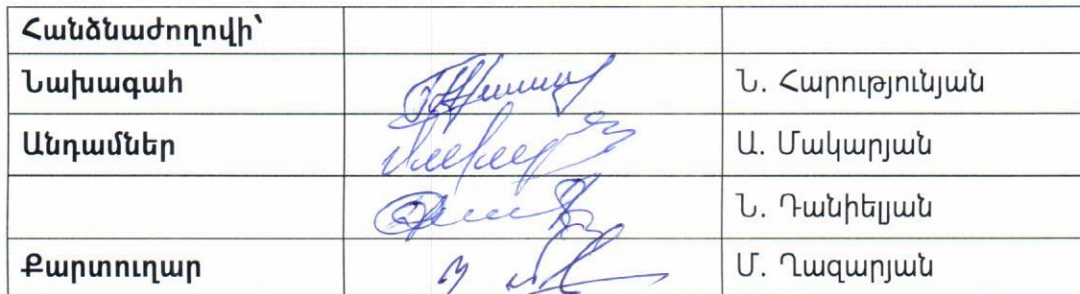 Հանձնաժողովի՝
Նախագահ Ն. Հարությունյան
Անդամներ Ա. Մակարյան
Ն. Դանիելյան
Քարտուղար Մ. Ղազարյան